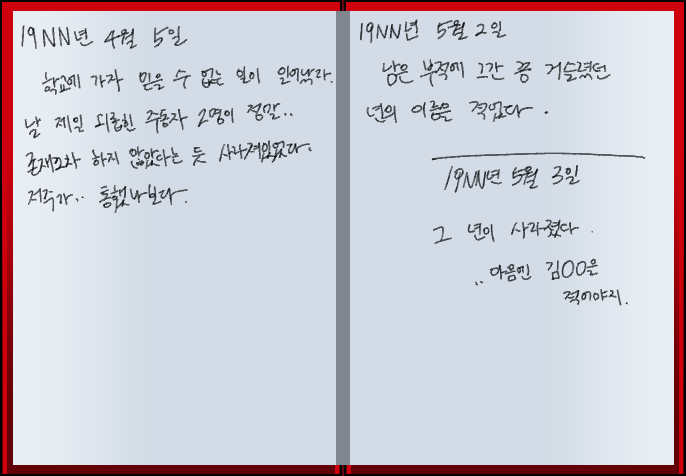 19NN년 4월 5일
학교에 가자 믿을 수 없는 일이 일어났다.
날 제일 괴롭힌 주동자 2명이 정말..
존재조차 하지 않았다는 듯 사라져있었다.
저주가.. 통했나보다.
19NN년 5월 2일
남은 부적에 그간 쭝 거슬렸던
년의 이름은 적었다.
19NN년 5월 3일
그 년이 사라졌다.
..다음엔 김OO을
적어야지.